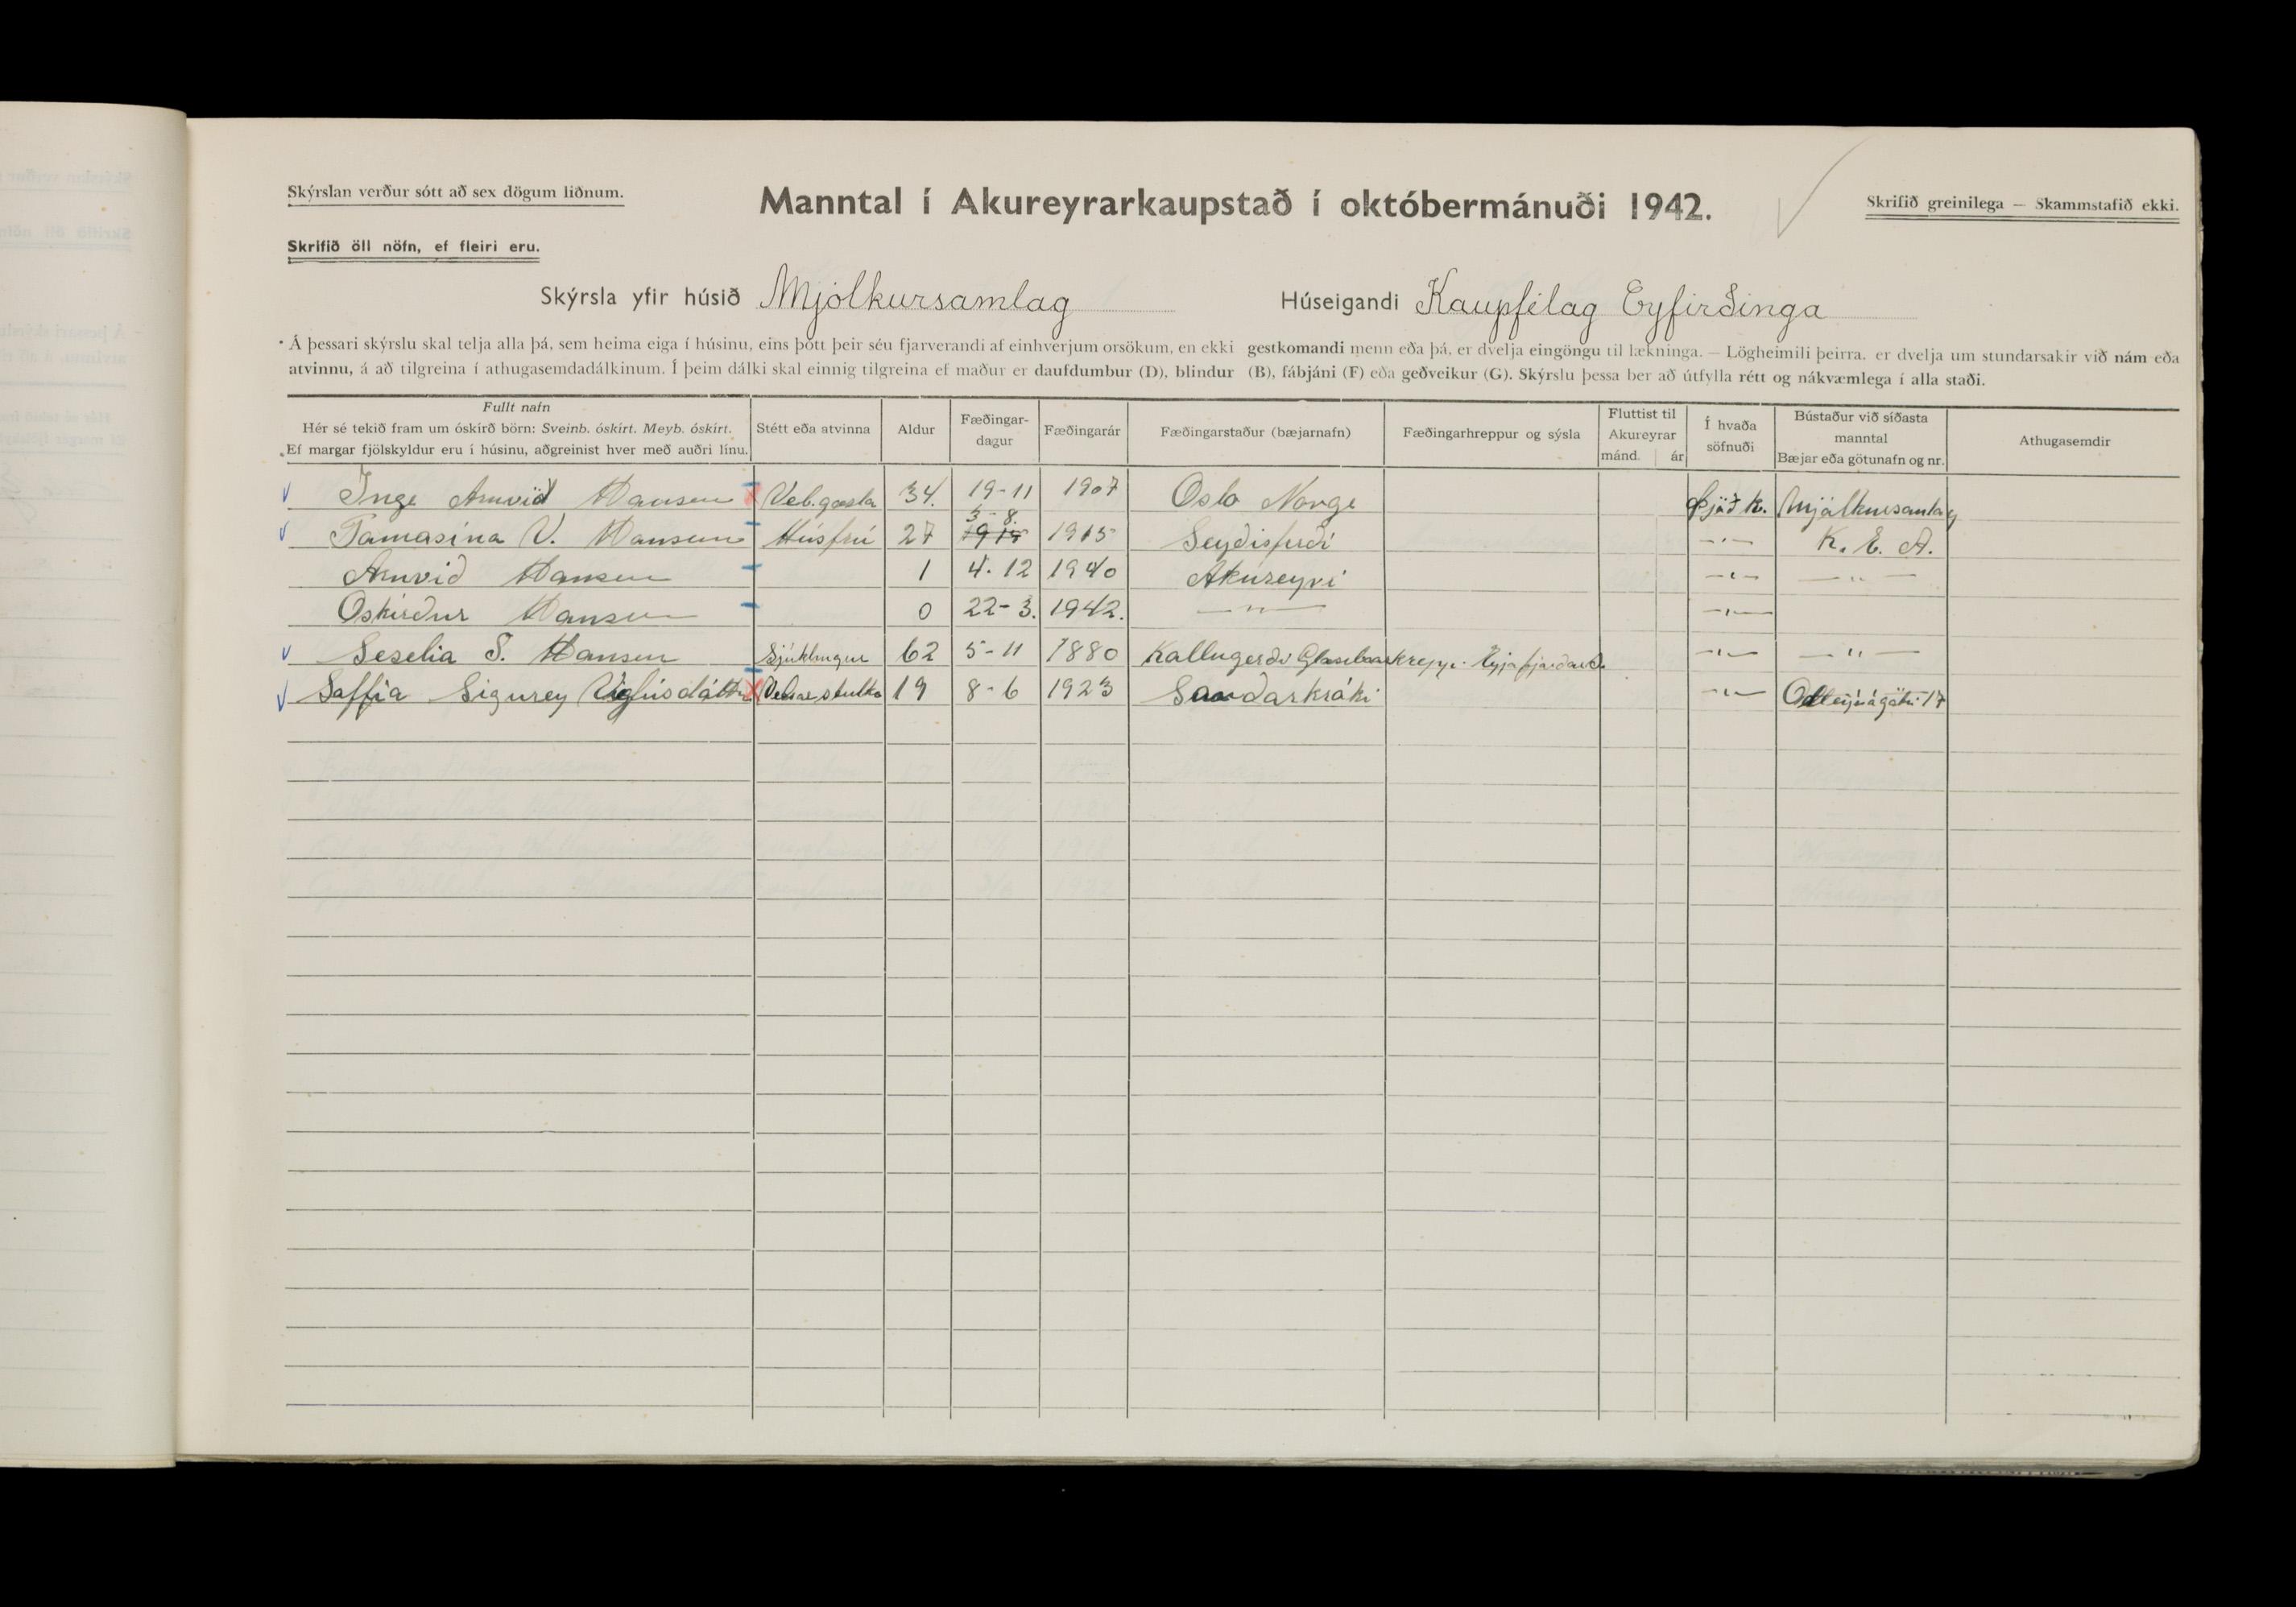 Skýrslan verður sótt að sex dögum liðnum.
Manntal í Akureyrarkaupstað í októbermánuði 1942.
Skrifið greinilega — Skammstafið ekki.
Skrifið öll nöfn, ef fleiri eru.
Skýrsla yfir húsið Mjólkursamlag Húseigandi Kaupfélag Eyfirðinga
Á þessari skýrslu skal telja alla þá, sem heima eiga í húsinu, eins þótt þeir séu fjarverandi af einhverjum orsökum, en ekki gestkomandi menn eða þá, er dvelja eingöngu til lækninga. — Lögheimili þeirra, er dvelja um stundarsakir við nám eða
atvinnu, á að tilgreina í athugasemdadálkinum. Í þeim dálki skal einnig tilgreina ef maður er daufdumbur (D), blindur (B), fábjáni (F) eða geðveikur (G). Skýrslu þessa ber að útfylla rétt og nákvæmlega í alla staði.
Fullt nafn
Hér sé tekið fram um óskírð börn: Sveinb. óskírt. Meyb. óskírt.
Ef margar fjölskyldur eru í húsinu, aðgreinist hver með auðri línu.
Stétt eða atvinna
Aldur
Fæðingar-
dagur
Fæðingarár
Fæðingarstaður (bæjarnafn)
Fæðingarhreppur og sýsla
Fluttist til
Akureyrar
mánd. ár
Í hvaða
söfnuði
Bústaður við síðasta
manntal
Bæjar eða götunafn og nr.
Athugasemdir
Inge Arnvid Hansen 34. 19-11 1907 Oslo Norge Þjóðk. Mjólkursamlag
Tamasína V. Hansen Húsfrú 27 3-8. 1915 1915 Seyðisfirði -"- K. E. A.
Arnvid Hansen 1 4.12 1940 Akureyri -"- -"-
Óskírður Hansen 0 22-3. 1942. -"- -"-
Seselia S. Hansen Sjúklingur 62 5-11 1880 Glæsibæarhrepp. Eyjafjarðars. -"- -"-
Soffía Sigurey Vigfúsdóttir 19 8-6 1923 Sauðarkróki -"- Oddeyrargötu 17